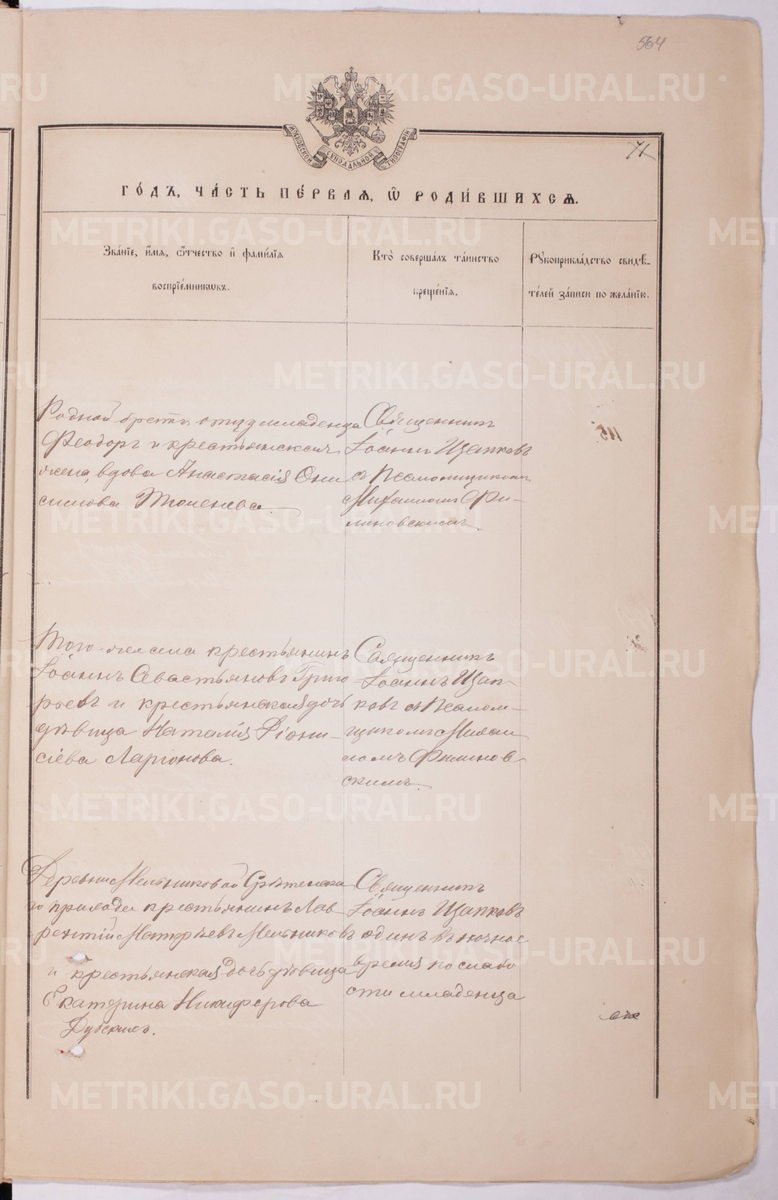 564
71
МОСКОВСКОЙ СѴНОДАЛЬНОЙ ТИПОГРАФІИ
ГОДЪ, ЧАСТЬ ПЕРВАЯ, Ѡ РОДИВШИХСЯ.
Званіе, имя, отчество и фамилія
воспріемниковъ.
Кто совершалъ таинство
крещенія.
Рукоприкладство свидѣ-
телей записи по желанію.
Родной братъ отца младенца
Феодоръ и крестьянская
жена, вдова Анастасія Они
симова
Священникъ
Іоаннъ Щапковъ
съ Псаломщикомъ
Михаиломъ Фи-
линовскимъ.
Того-же села крестьянинъ
Іоаннъ Севастьяновъ Григо
рьевъ и крестьянская дочь
дѣвица Наталія Діони-
сіева Ларіонова.
Священникъ
Іоаннъ Щап-
ковъ съ Псалом-
щикомъ Михаи
ломъ Филинов
скимъ.
Деревни Мельниковой Срѣтенска
го прихода крестьянинъ Лав
рентій Мельниковъ
и крестьянская дочь дѣвица
Екатерина Никифорова
Священникъ
Іоаннъ Щапковъ
одинъ въ ночное
время по слабо
сти младенца
METRIKI.GASO-URAL.RU